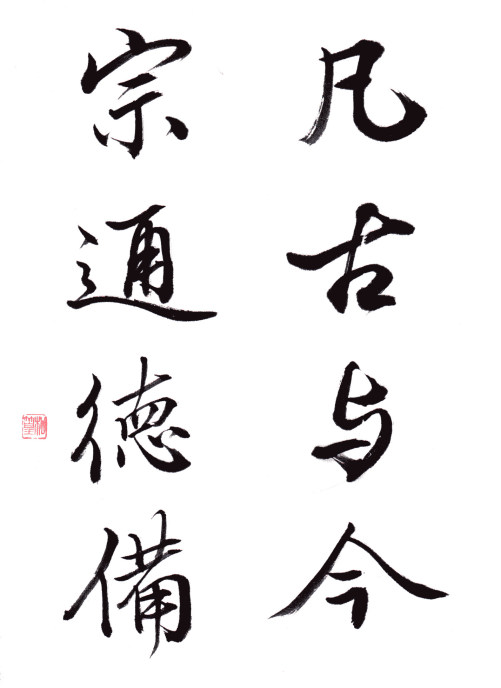 凡古与今
宗通德備